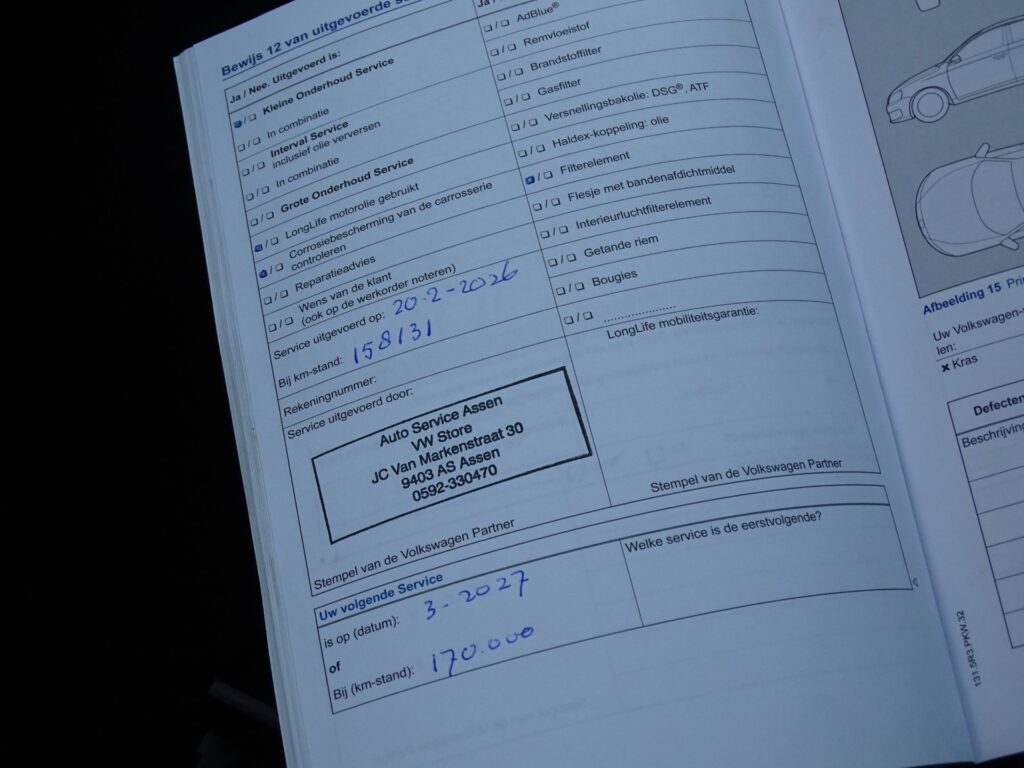 Bewijs 12 van uitgevoerde
Ja / Nee. Uitgevoerd is:
Kleine Onderhoud Service
In combinatie
Interval Service
inclusief olie verversen
In combinatie
Grote Onderhoud Service
LongLife motorolie gebruikt
Corrosiebescherming van de carrosserie
controleren
Reparatieadvies
Wens van de klant
(ook op de werkorder noteren)
Service uitgevoerd op: 20-2-2026
Bij km-stand: 158131
Rekeningnummer:
Service uitgevoerd door:
Auto Service Assen
VW Store
JC Van Markenstraat 30
9403 AS Assen
0592-330470
Stempel van de Volkswagen Partner
Ja /
AdBlue®
Remvloeistof
Brandstoffilter
Gasfilter
Versnellingsbakolie: DSG®, ATF
Haldex-koppeling: olie
Filterelement
Flesje met bandenafdichtmiddel
Interieurluchtfilterelement
Getande riem
Bougies
LongLife mobiliteitsgarantie:
Stempel van de Volkswagen Partner
Uw volgende Service
is op (datum): 3-2027
of
Bij (km-stand): 170.000
Welke service is de eerstvolgende?
131.5R3.PKW.32
Afbeelding 15
Uw Volkswagen-
len:
✘ Kras
Defecten